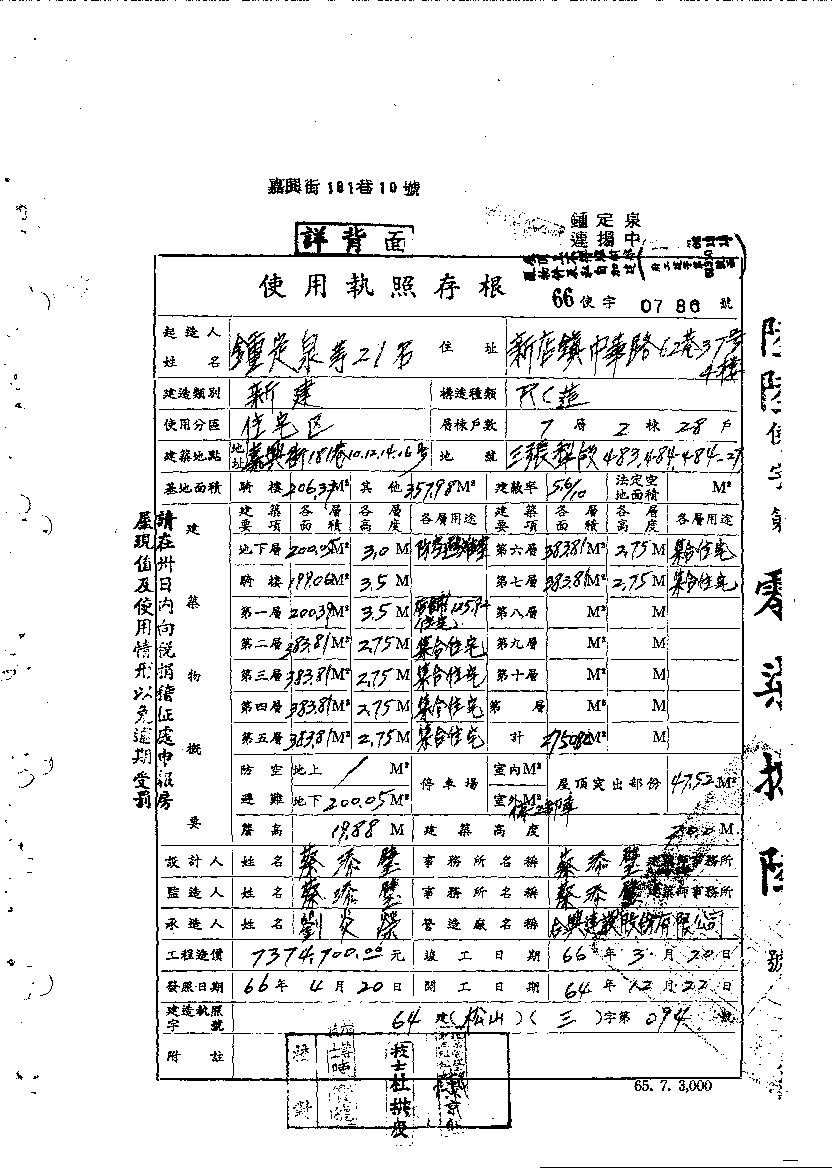 嘉興街181巷10號
詳背面
鍾定泉
使用執照存根
66使字0786號
起造人姓名 鍾定泉等21名 住址 新店鎮中華路62巷37号4樓
建造類別 新建 構造種類 RC造
使用分區 住宅区 層棟戶數 7層2棟28戶
建築地點 地址 嘉興街181巷10.12.14.16号 地號 三張犁段483.484.484-27
基地面積 騎樓 206.37M² 其他 357.98M² 建蔽率 5.6/10 法定空地面積 M²
建築物概要
建築要項 各層面積 各層高度 各層用途 建築要項 各層面積 各層高度 各層用途
地下層 200.05M² 3.0M 第六層 383.81M² 2.75M 集合住宅
騎樓 199.06M² 3.5M 第七層 383.81M² 2.75M 集合住宅
第一層 200.39M² 3.5M 第八層 M² M
第二層 383.81M² 2.75M 集合住宅 第九層 M² M
第三層 383.81M² 2.75M 集合住宅 第十層 M² M
第四層 383.81M² 2.75M 集合住宅 第 層 M² M
第五層 383.81M² 2.75M 集合住宅 計 M² M
防空避難 地上 / M² 停車場 室內M² 屋頂突出部份 47.52M²
地下 200.05M² 室外M²
簷高 19.88M 建築高度 M
設計人 姓名 蔡添璧 事務所名稱 蔡添璧建築師事務所
監造人 姓名 蔡添璧 事務所名稱 蔡添璧建築師事務所
承造人 姓名 劉炎榮 營造廠名稱 合興建設股份有限公司
工程造價 7374,700.00元 竣工日期 66年3月20日
發照日期 66年4月20日 開工日期 64年12月22日
建造執照字號 64建(松山)(三)字第094號
附註
65.7.3,000
請在卅日內向稅捐稽征處申報房
屋現值及使用情形以免逾期受罰
陸陸使字第零柒捌陸號